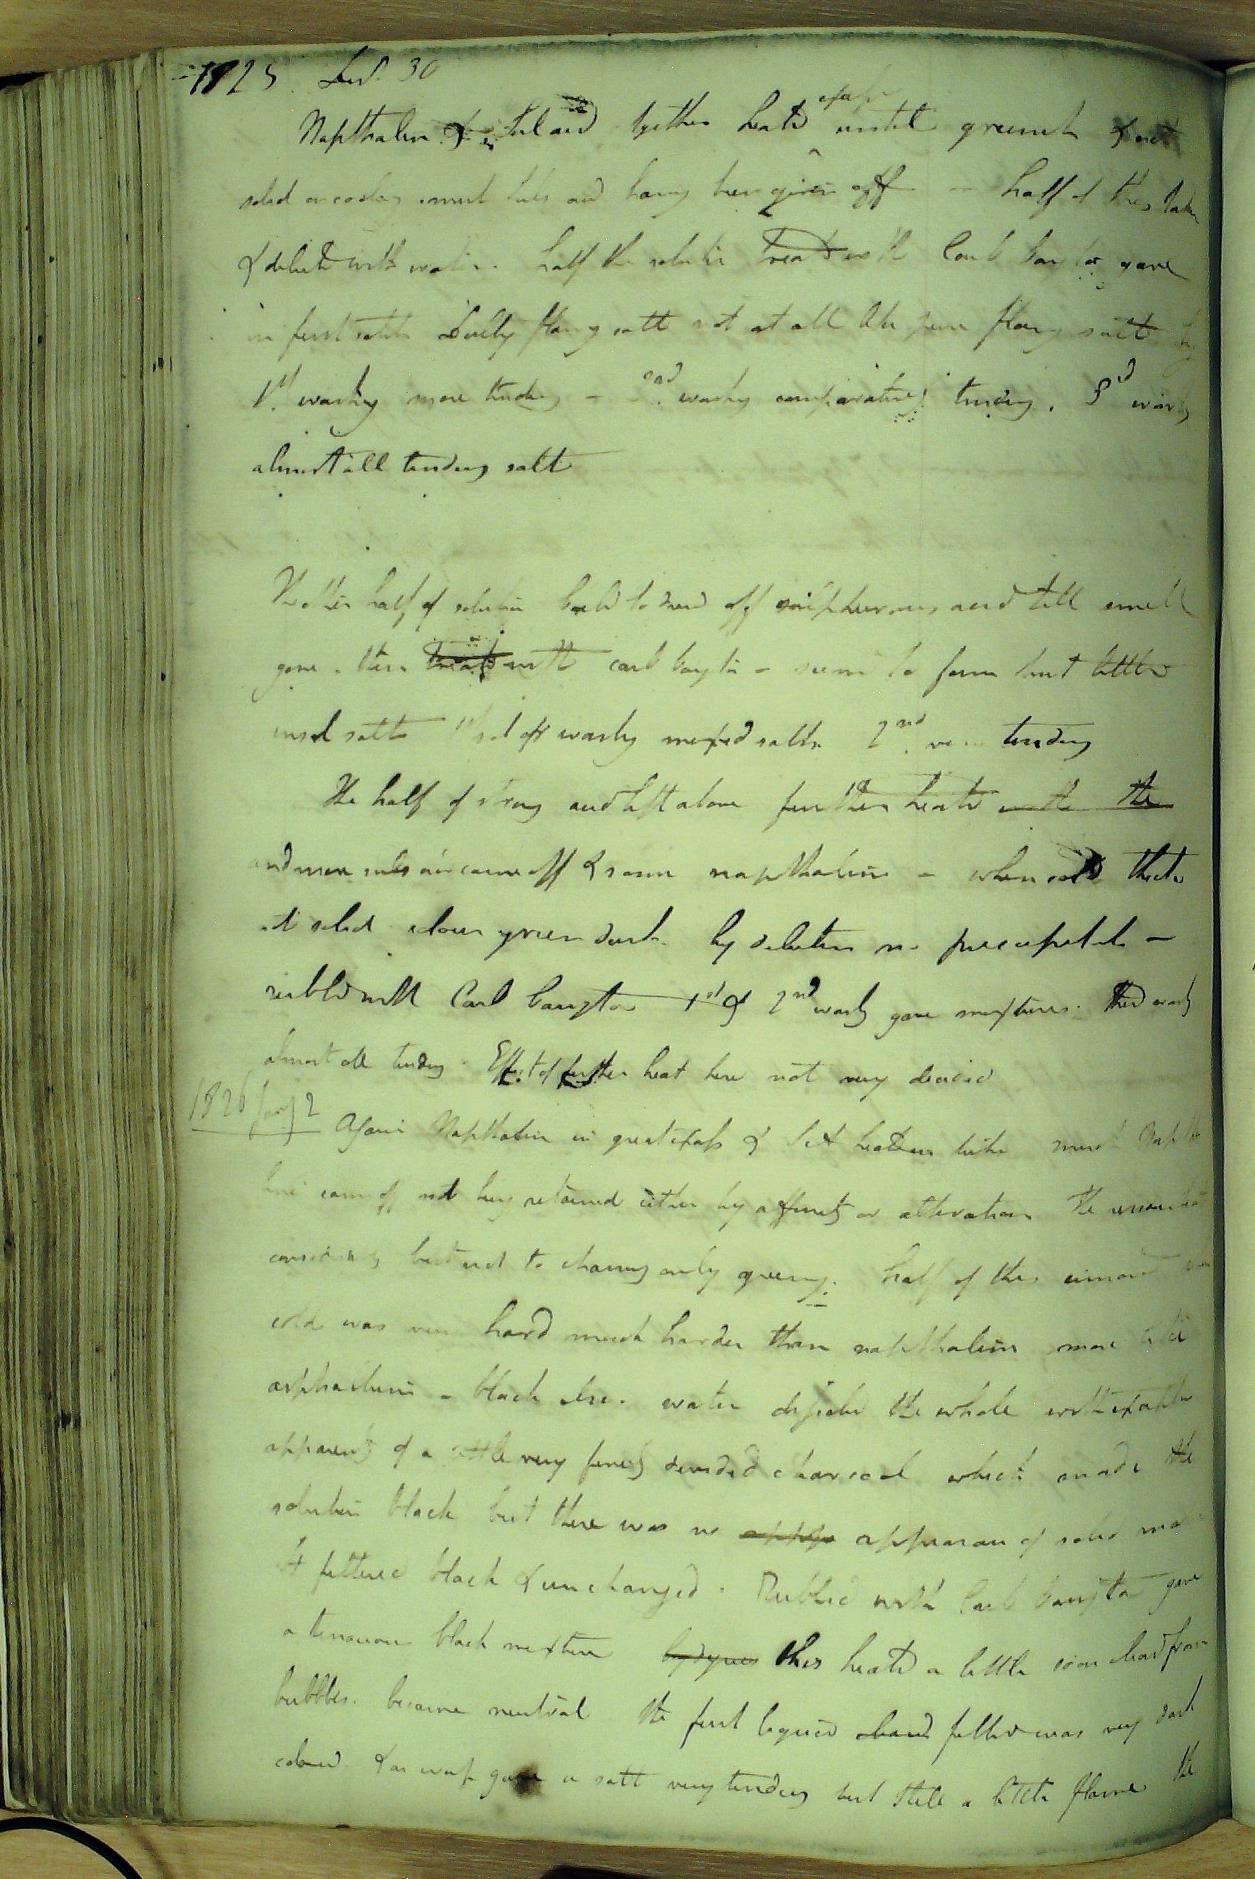 1825 Decr. 30
Napthaline & Sul acid together heated until greenish & not
solid on cooling much sulps acid having been given off - half of this taken
& diluted with water. half the solution treated with Carb baryta gave
in first soltn flamy salt not at all like pure flamy salt
1st. washing more tindery - 2nd. washing comparatively tindery. 3d washg
almost all tindery salt
The other half of solution boild to send off sulphurous acid till smell
gone. then treated with carb baryta - seemd to form but little
insol salt 1st washg mixed salts 2nd. very tindery
The half of strong acid left alone further heated with the
and more sulps acid came off & some napthaline - when cold thick
not solid colour green dark. by dilution no precipitate -
rubbed with Carb baryta 1st & 2nd washg gave mixtures. Third washg
almost all tindery. Effect of further heat here not very decided
1826 Jany 2 Again Napthaline in great excess & SA heated as before much Naptha
line came off not being retained either by affinity or alteration The
considerably but not to charring only greeny. half of this
cold was very hard much harder than napthaline more like
asphaltum - black also. water dissolved the whole with exception
apparently of a little very finely divided charcoal which made the
solution black but there was no appearance of solid
It filtered black & unchanged. Rubbed with Carb baryta gave
a tenacious black mixture by degrees this heated a little soon cleard from
bubbles. became neutral the first liquid filtered was very dark
colored & on evap gave a salt very tindery but still a little flame the